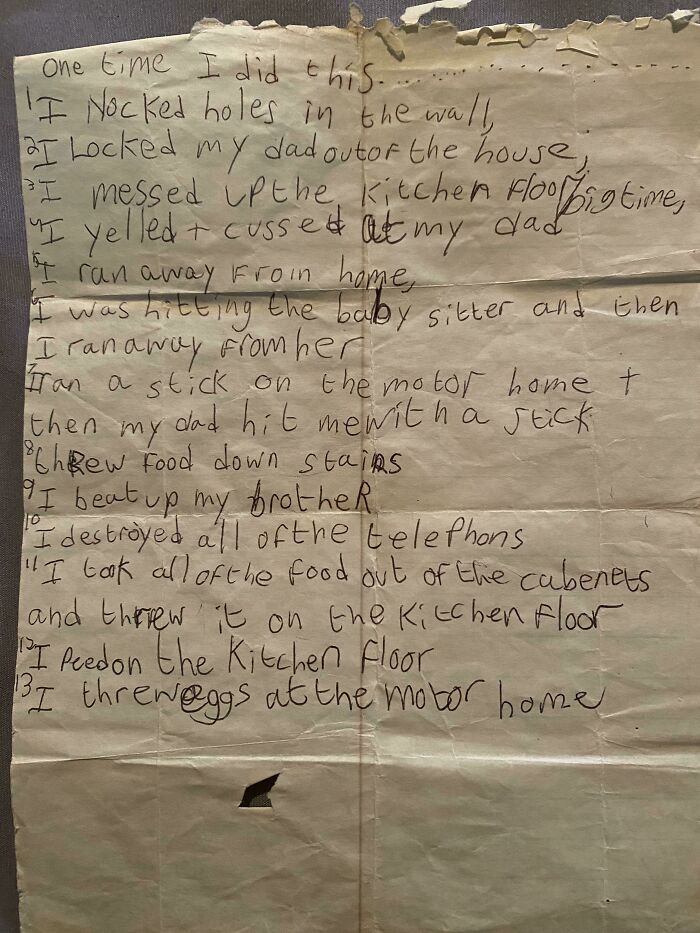 One time I did this....................
1 I Nocked holes in the wall,
2 I Locked my dad out of the house,
3 I messed up the kitchen floor big time,
4 I yelled + cussed at my dad
5 I ran away From home,
6 I was hitting the baby sitter and then
I ran away from her
7 I ran a stick on the motor home +
then my dad hit me with a stick
8 threw food down stairs
9 I beat up my brotheR
10 I destroyed all of the telephons
11 I took all of the food out of the cabenets
and threw it on the kitchen floor
12 I Peed on the Kitchen Floor
13 I threw eggs at the motor home